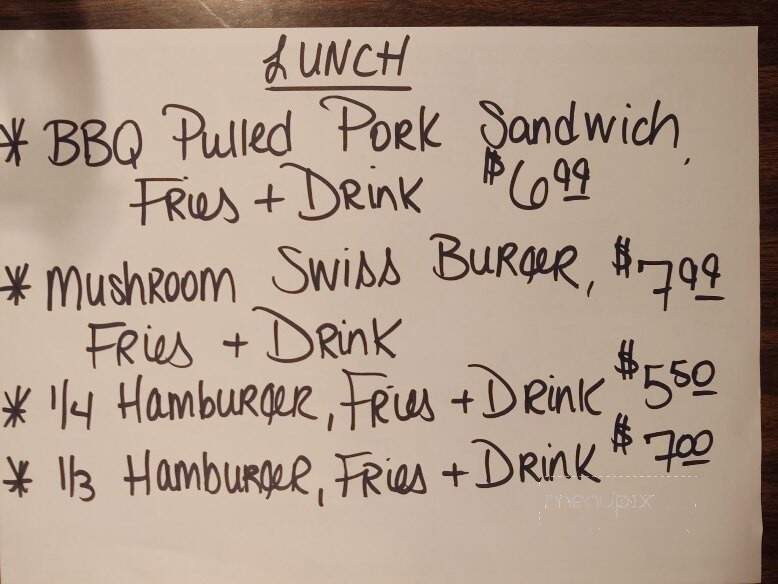 LUNCH
* BBQ Pulled Pork Sandwich,
Fries + Drink $6.99
* Mushroom Swiss Burger, $7.99
Fries + Drink
* 1/4 Hamburger, Fries + Drink $5.50
* 1/3 Hamburger, Fries + Drink $7.00
menupix